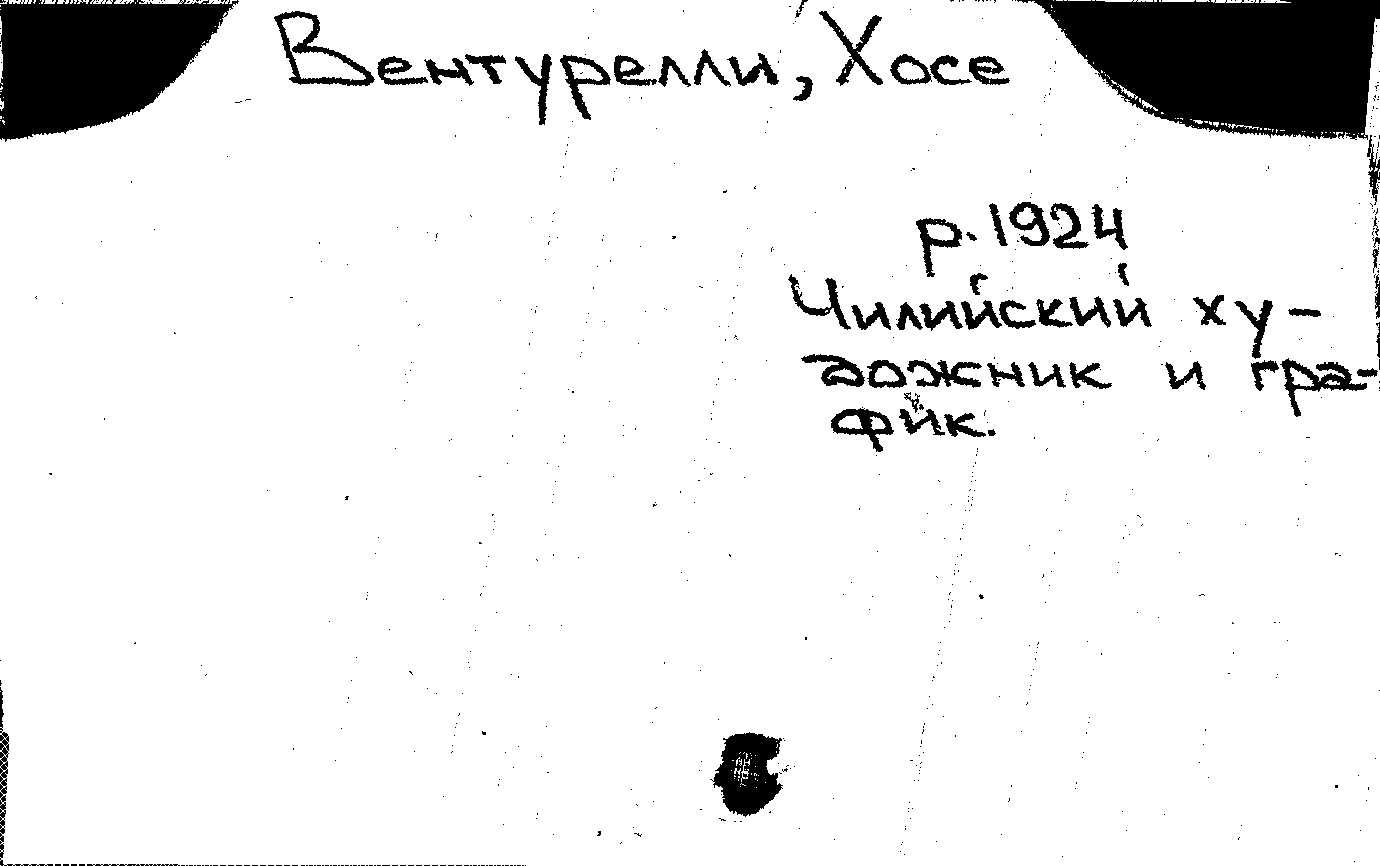 Вентурелли, Хосе
р. 1924
Чилийский ху-
дожник и гра-
фик.